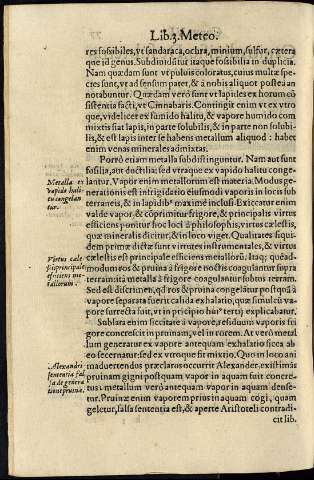 Lib.3. Meteo.
res fossibiles, vt sandaraca, ochra, minium, sulfur, cætera
que id genus. Subdiuiditur itaque fossibilia in duplicia.
Nam quædam sunt vt puluis coloratus, cuius multæ spe-
cies sunt, vt ad sensum patet, & à nobis aliquot postea an
notabuntur. Quædam verò sunt vt lapides ex horum cō
sistentia facti, vt Cinnabaris. Contingit enim vt ex vtro
que, videlicet ex fumido halitu, & vapore humido com
mixtis fiat lapis, in parte solubilis, & in parte non solubi-
lis, & est lapis inter se habens metallum aliquod : habet
enim venas minerales admixtas.
Porrò etiam metalla subdistinguntur. Nam aut sunt
Metalla ex
vapido hali
tu congelan
tur.
fossilia, aut ductilia: sed vtraque ex vapido halitu conge-
lantur. Vapor enim metallorum est materia. Modus ge-
nerationis est infrigidatio eiusmodi vaporis in locis sub
terraneis, & in lapidib⁹ maximè inclusi. Exiccatur enim
valde vapor, & cōprimitur frigore, & principalis virtus
efficiens ponitur hoc loci à philosophis, virtus cælestis,
quæ minerales dicitur, & in loco viget. Qualitates siqui-
dem primæ dictæ sunt virtutes instrumentales, & virtus
Virtus cæle
stis principale
efficiens me-
tallorum.
cælestis est principale efficiens metallorū. Itaq; quéad-
modum ros & pruina à frigore noctis coagulantur supra
terram: ita metalla à frigore coagulantur sub ipsis terram.
Sed est discrimen, qđ ros & pruina congelātur postquā à
vapore separata fuerit calida exhalatio, quæ simul cū va-
pore surrecta fuit, vt in principio hui⁹ tertij explicabatur.
Sublata enim siccitate à vapore, residuum vaporis fri
gore concrescit in pruinam, vel in rorem. At verò metal
lum generatur ex vapore antequam exhalatio sicca ab
eo secernatur: sed ex vtroque fit mixtio. Quo in loco ani
Alexandri
sententia fal
sa de genera
tione pruinæ.
maduertendus præclaros occurrit Alexander, existimās
pruinam gigni postquam vapor in aquam fuit concre-
tus: metallum verò antequam vapor in aquam dense-
tur. Pruinæ enim vaporem prius in aquam cogi, quam
geletur, falsa sententia est, & aperte Aristoteli contradi-
cit lib.